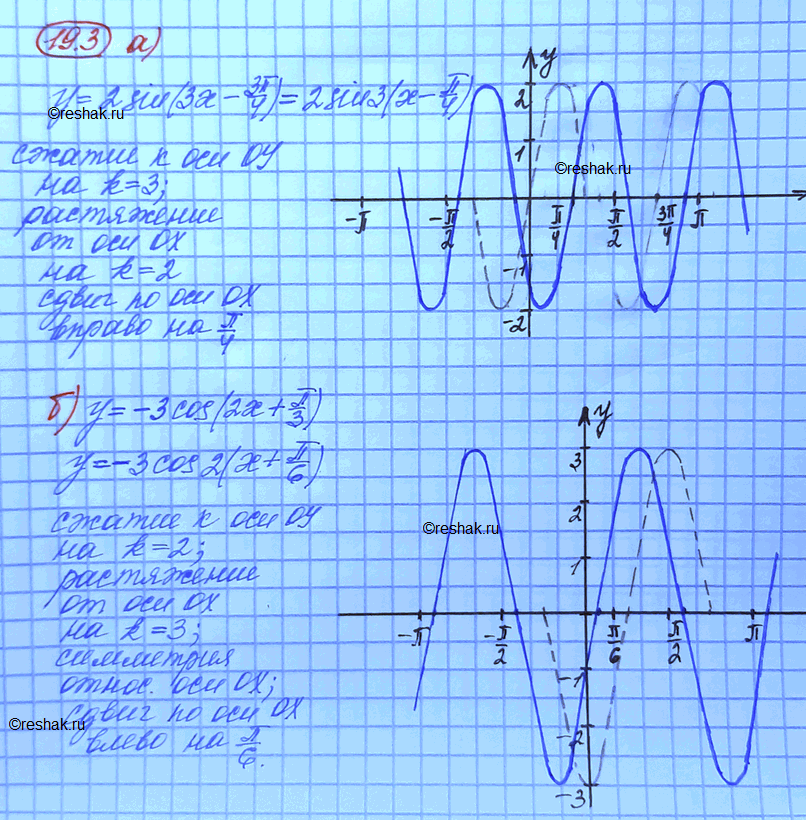 19.3 а)
y = 2 sin(3x - 3π/4) = 2 sin 3(x - π/4)
©reshak.ru
сжатие к оси OY
на k=3;
растяжение
от оси OX
на k=2
сдвиг по оси OX
вправо на π/4
y
2
1
©reshak.ru
-π
-π/2
π/4
π/2
3π/4
π
-1
-2
б) y = -3 cos(2x + π/3)
y = -3 cos 2(x + π/6)
сжатие к оси OY
на k=2;
растяжение
от оси OX
на k=3;
симметрия
относ. оси OX;
сдвиг по оси OX
©reshak.ru
влево на π/6.
y
3
2
©reshak.ru
1
-π
-π/2
π/6
π/2
π
-1
-2
-3